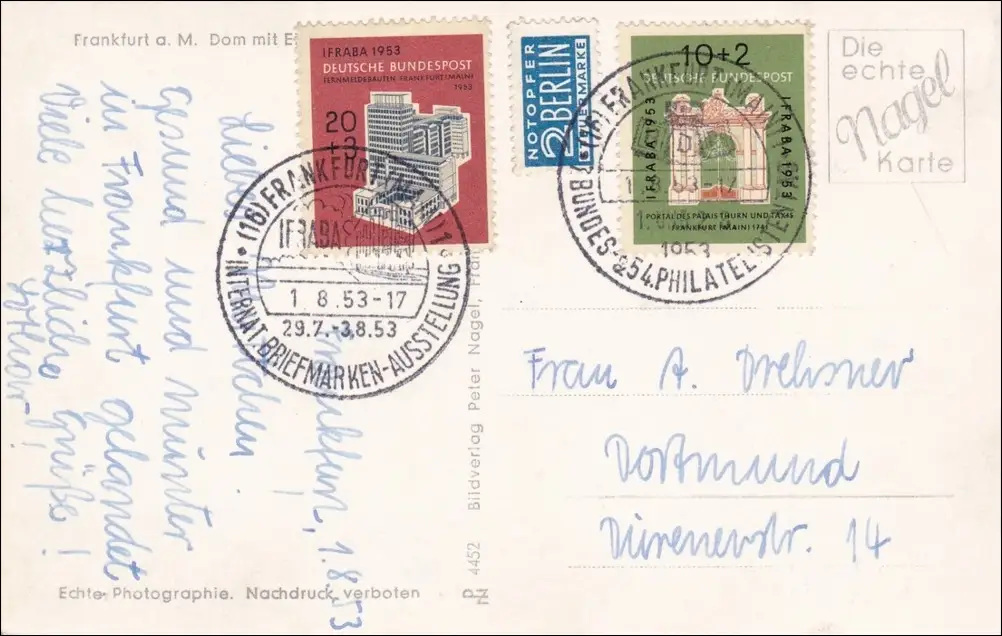 Frankfurt a. M. Dom mit
IFRABA 1953
DEUTSCHE BUNDESPOST
FERNMELDEBAUTEN FRANKFURT/MAIN
1953
20
+3
NOTOPFER
2 BERLIN
STEUERMARKE
10+2
DEUTSCHE BUNDESPOST
IFRABA 1953
IFRABA 1953
PORTAL DES PALAIS THURN UND TAXIS
FRANKFURT (MAIN) 1741
1953
Die
echte
Nagel
Karte
(16) FRANKFURT
IFRABA
1 8.53-17
29.7.-3.8.53
INTERNAT. BRIEFMARKEN-AUSSTELLUNG
(16) FRANKFURT (MAIN)
BUNDES- & 54. PHILATELISTEN
Frankfurt, 1.8.53
gesund und munter
in Frankfurt gelandet
Viele herzliche Grüße!
Frau A.
Dortmund
Dürenerstr. 14
4452 Bildverlag Peter Nagel,
Echte Photographie. Nachdruck verboten